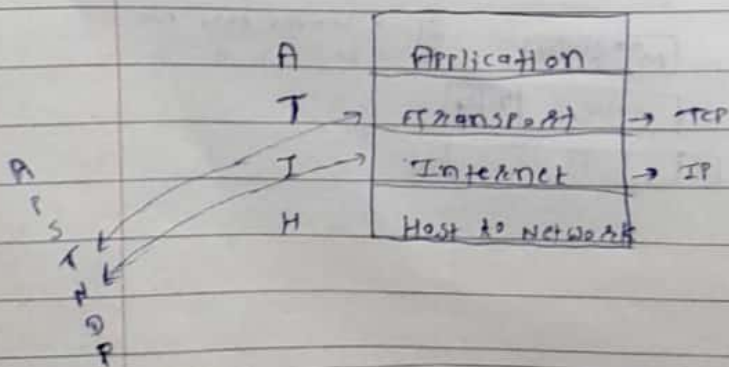 A Application
T Transport → TCP
I Internet → IP
H Host to Network
A
P
S
T
N
D
P